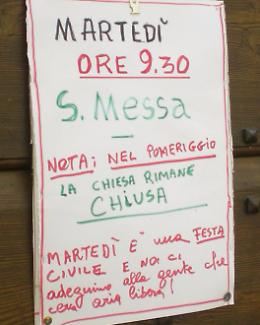 MARTEDÌ
ORE 9.30
S. MESSA
NOTA; NEL POMERIGGIO
LA CHIESA RIMANE
CHIUSA
MARTEDÌ E' una FESTA
CIVILE E NOI CI
adeguiamo alla gente che
cerca aria libera!